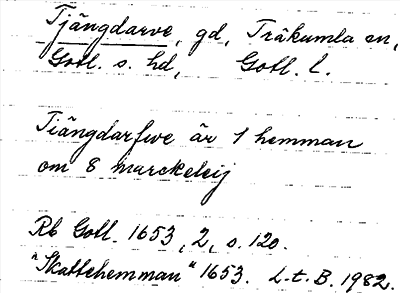 Tjängdarve, gd, Träkumla sn,
Gotl. s. hd, Gotl. l.
Tiängdarfwe är 1 hemman
om 8 marckeleij
Rb Gotl. 1653, 2, s. 120.
"Skattehemman" 1653. L.t.B. 1982.